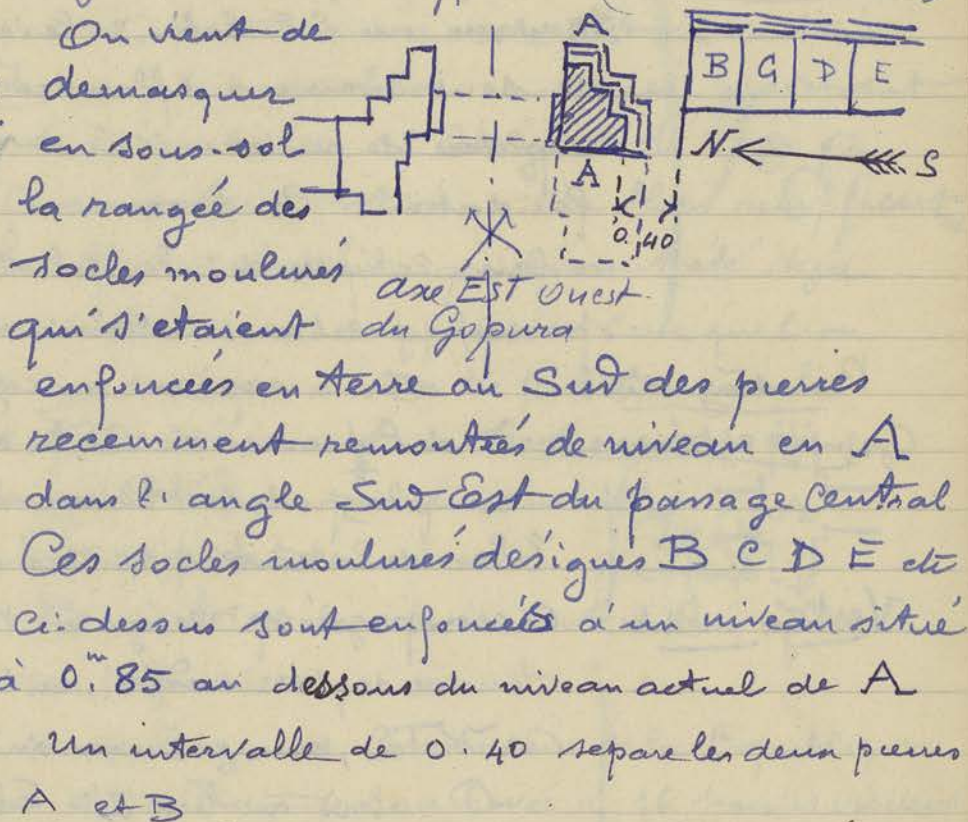 On vient de
demasquer
en sous-sol
la rangée des
socles moulurés
qui s'etaient
A
B G D E
N. S
A
0. 40
axe Est Ouest
du Gopura
enfoncés en terre au Sud des pierres
recemment remontées de niveau en A
dans l'angle Sud Est du passage central
Ces socles moulurés désignés B C D E etc
ci-dessus sont enfoncés à un niveau situé
à 0.m 85 au dessous du niveau actuel de A
Un intervalle de 0.40 separe les deux pierres
A et B